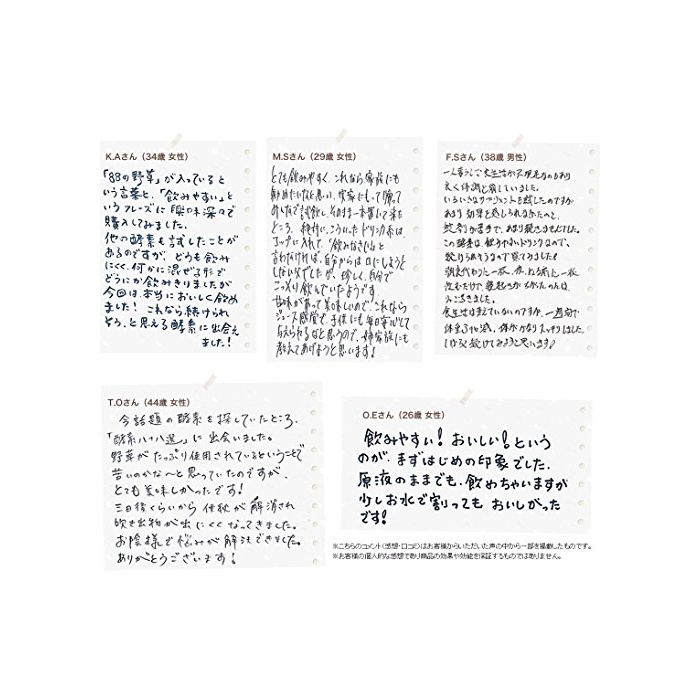 K.Aさん（34歳 女性）
「88の野草」が入っていると
いう言葉と、「飲みやすい」と
いうフレーズに興味深々で
購入してみました。
他の酵素も試したことが
あるのですが、どうも飲み
にくく、何かに混ぜる形で
どうにか飲みきりましたが
今回は、本当においしく飲め
ました! これなら続けられ
そう、と思える酵素に出会え
ました!
M.Sさん（29歳 女性）
とても飲みやすく、これなら家族にも
ところ、絶対に、こういったドリンク系は、
コップに入れて、「飲みなさい」と
言わなければ、自分からは口にしようと
しない父でしたが、珍しく、自分で
こっそり飲んでいたようです
甘味があって美味しいので、これなら
ジュース感覚で、子供にも毎日安心して
与えられるなと思うので、姉家族にも
教えてあげようと思います!
F.Sさん（38歳 男性）
一人暮らしで食生活が不規則なのもあり
良く体調を崩していました。
いろいろなサプリメントを試したのですが
あまり効果を感じられなかったのと、
錠剤が苦手で、あまり続きませんでした。
この酵素は、甘うまいドリンクなので、
T.Oさん（44歳 女性）
今話題の酵素を探していたところ、
「酵素八十八選」に出会いました。
野草がたっぷり使用されているということで
苦いのかな〜と思っていたのですが、
とても美味しかったです!
三日後くらいから便秘が解消され
吹き出物が出にくくなってきました。
お陰様で悩みが解決できました。
ありがとうございます!
O.Eさん（26歳 女性）
飲みやすい! おいしい! という
のが、まずはじめの印象でした。
原液のままでも、飲めちゃいますが
少しお水で割っても おいしかった
です!
※こちらのコメント（感想・口コミ）はお客様からいただいた声の中から一部を掲載したものです。
※お客様の個人的な感想であり商品の効果や効能を保証するものではありません。